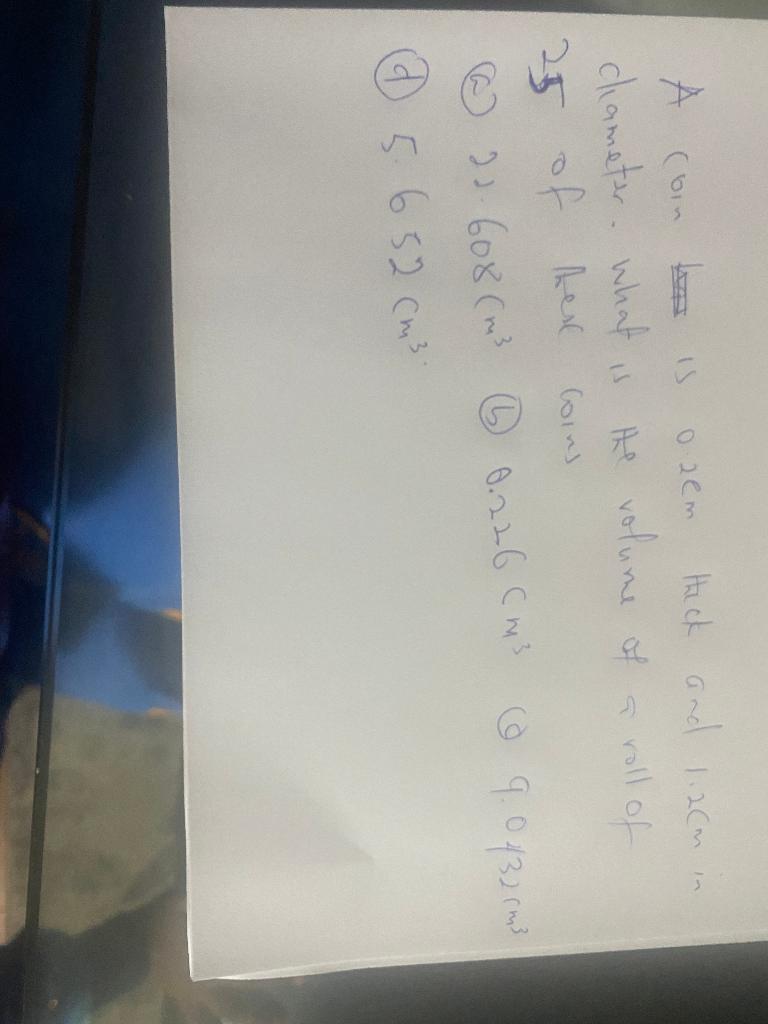 A coin is 0.2cm thick and 1.2cm in
diameter. what is the volume of a roll of
25 of these coins
(a) 22.608 cm³ (b) 0.226 cm³ (c) 9.0432 cm³
(d) 5.652 cm³.